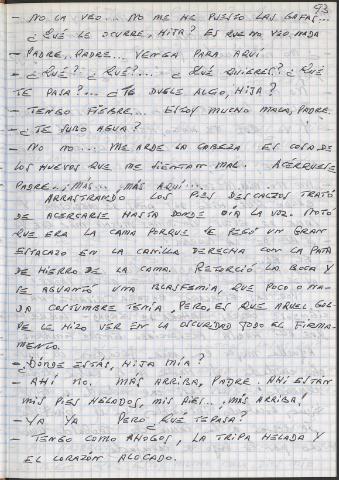 93
- NO LA VEO... NO ME HE PUESTO LAS GAFAS...
¿QUÉ LE OCURRE, HIJA? ES QUE NO VEO NADA
- PADRE, PADRE... VENGA PARA AQUÍ
- ¿QUÉ? ¿QUÉ?... ¿QUÉ QUIERES? ¿QUÉ
TE PASA?... ¿TE DUELE ALGO, HIJA?
- TENGO FIEBRE... ESTOY MUCHO MALA, PADRE.
- ¿TE SUBO AGUA?
- NO NO... ME ARDE LA CABEZA ES COSA DE
LOS HUEVOS QUE ME SIENTAN MAL. ACÉRQUESE
PADRE, ¡MÁS... ¡MÁS AQUÍ...
ARRASTRANDO LOS PIES DESCALZOS TRATÓ
DE ACERCARSE HASTA DONDE OÍA LA VOZ. NOTÓ
QUE ERA LA CAMA PORQUE SE PEGÓ UN GRAN
ESTACAZO EN LA CANILLA DERECHA CON LA PATA
DE HIERRO DE LA CAMA. RETORCIÓ LA BOCA Y
SE AGUANTÓ UNA BLASFEMIA, QUE POCO O NA-
DA COSTUMBRE TENÍA, PERO, ES QUE AQUEL GOL-
PE LE HIZO VER EN LA OSCURIDAD TODO EL FIRMA-
MENTO.
- ¿DÓNDE ESTÁS, HIJA MÍA?
- AHÍ NO. MÁS ARRIBA, PADRE. AHÍ ESTÁN
MIS PIES HELADOS, MIS PIES... ¡MÁS ARRIBA!
- YA YA PERO ¿QUÉ TE PASA?
- TENGO COMO AHOGOS, LA TRIPA HELADA Y
EL CORAZÓN ALOCADO.